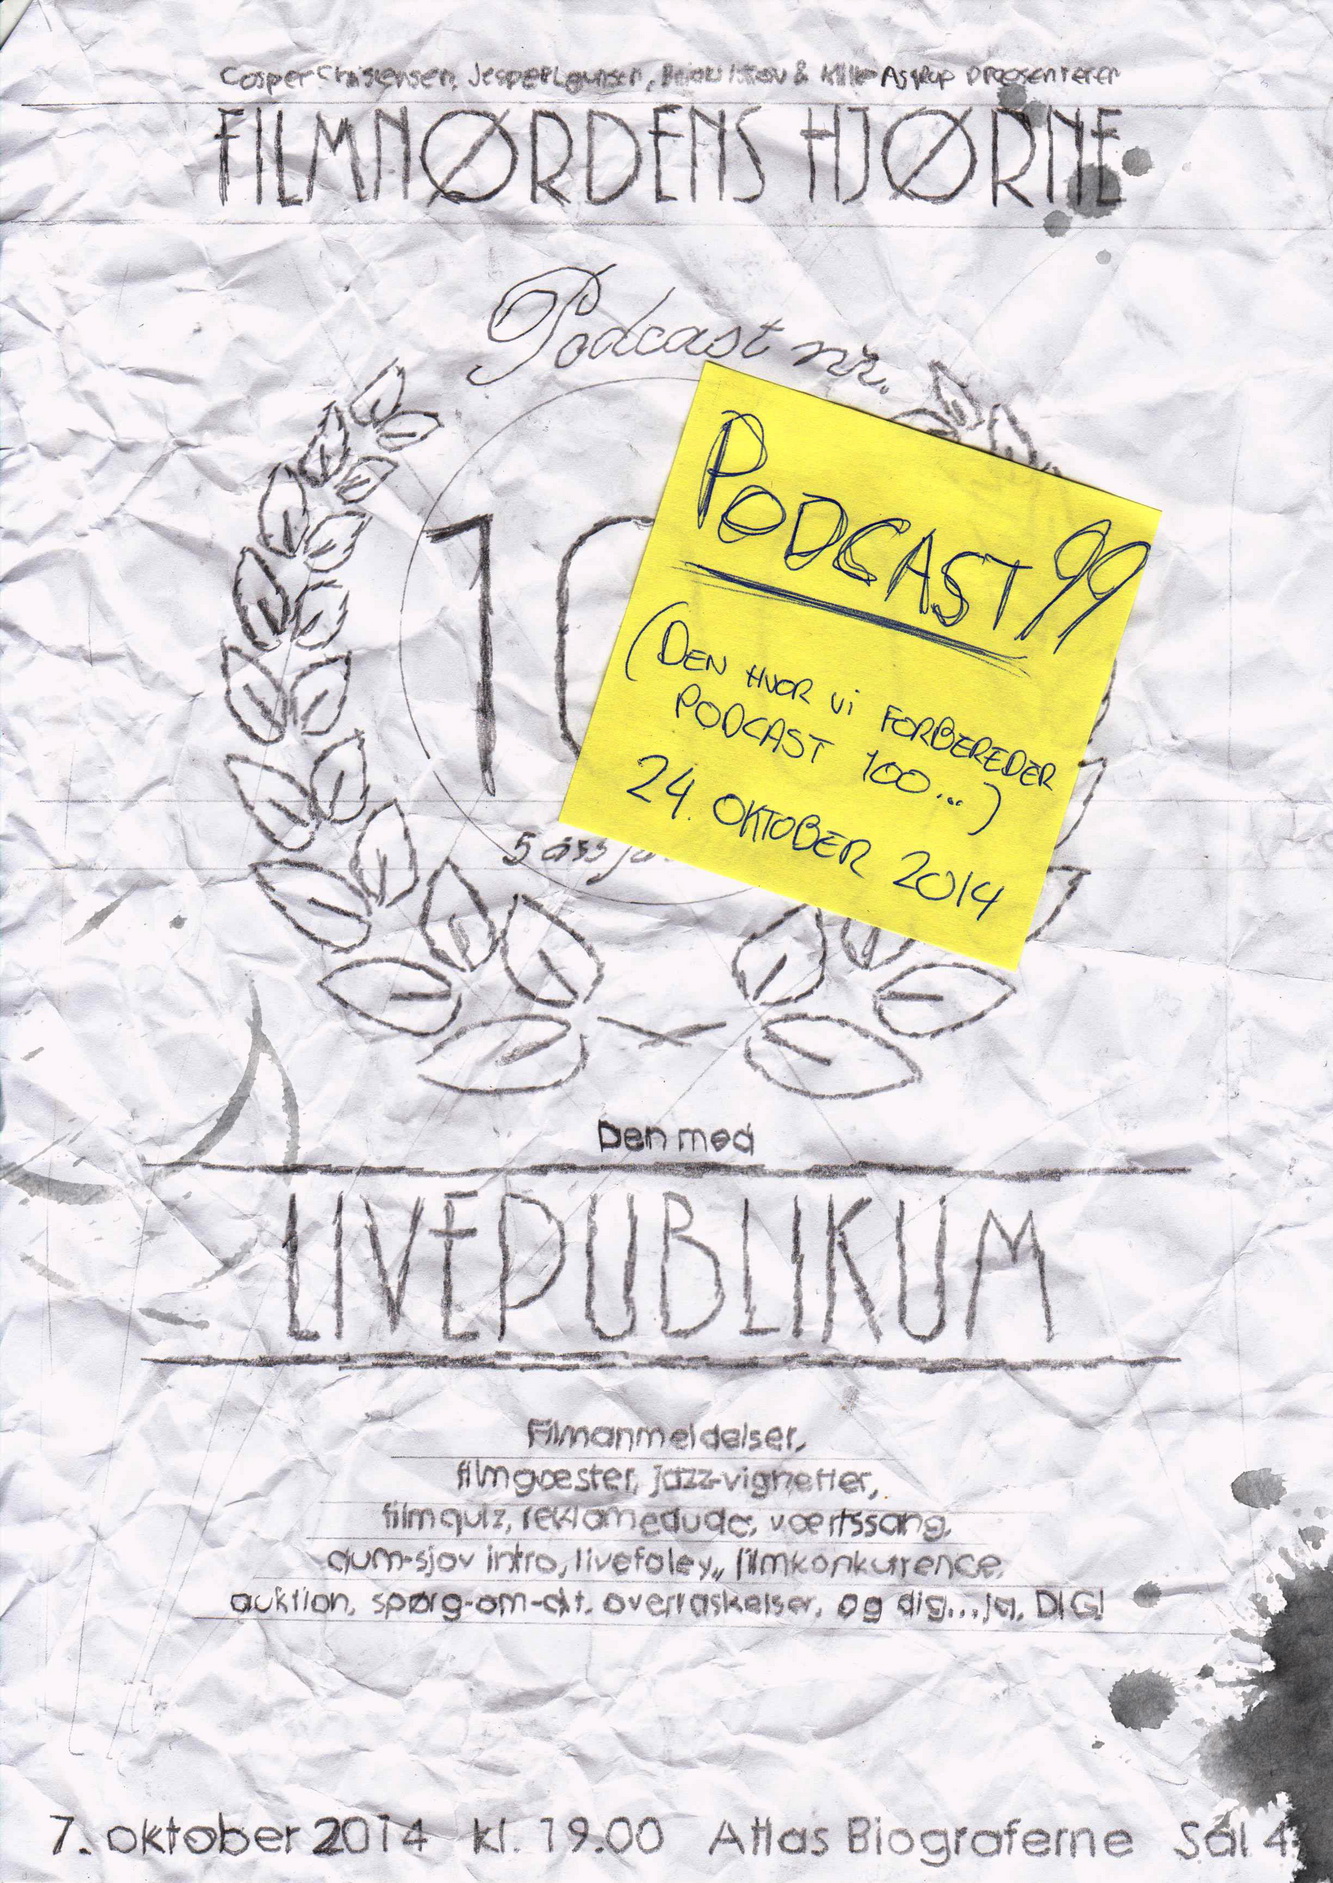 Casper Christensen, Jesper Laursen, & Mille Astrup præsenterer
FILMNØRDENS HJØRNE
Podcast nr.
10
PODCAST 99
(DEN HVOR Vi FORBEREDER
PODCAST 100...)
24. OKTOBER 2014
5 års
Den med
LIVEPUBLIKUM
Filmanmeldelser,
filmgæster, jazz-vignetter,
filmquiz, reklamedude, værtssang,
dum-sjov intro, livefoley,, filmkonkurrence,
auktion, spørg-om-alt, overraskelser, og dig...ja, DIG!
7. oktober 2014 kl. 19.00 Atlas Biograferne Sal 4